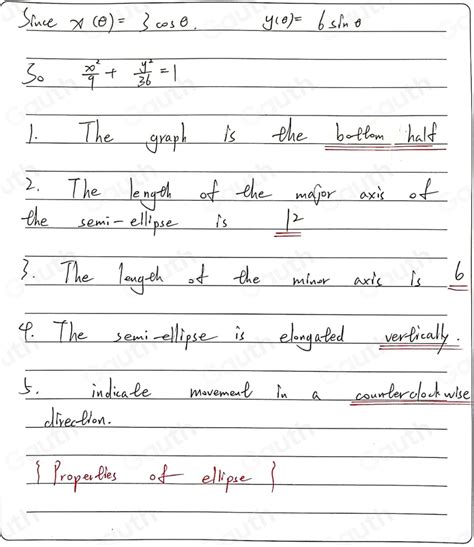 Since x(θ) = 3 cos θ. y(θ) = 6 sin θ
So x²/9 + y²/36 = 1
1. The graph is the bottom half
2. The length of the major axis of
the semi-ellipse is 12
3. The length of the minor axis is 6
4. The semi-ellipse is elongated vertically.
5. indicate movement in a counterclockwise
direction.
{ Properties of ellipse }